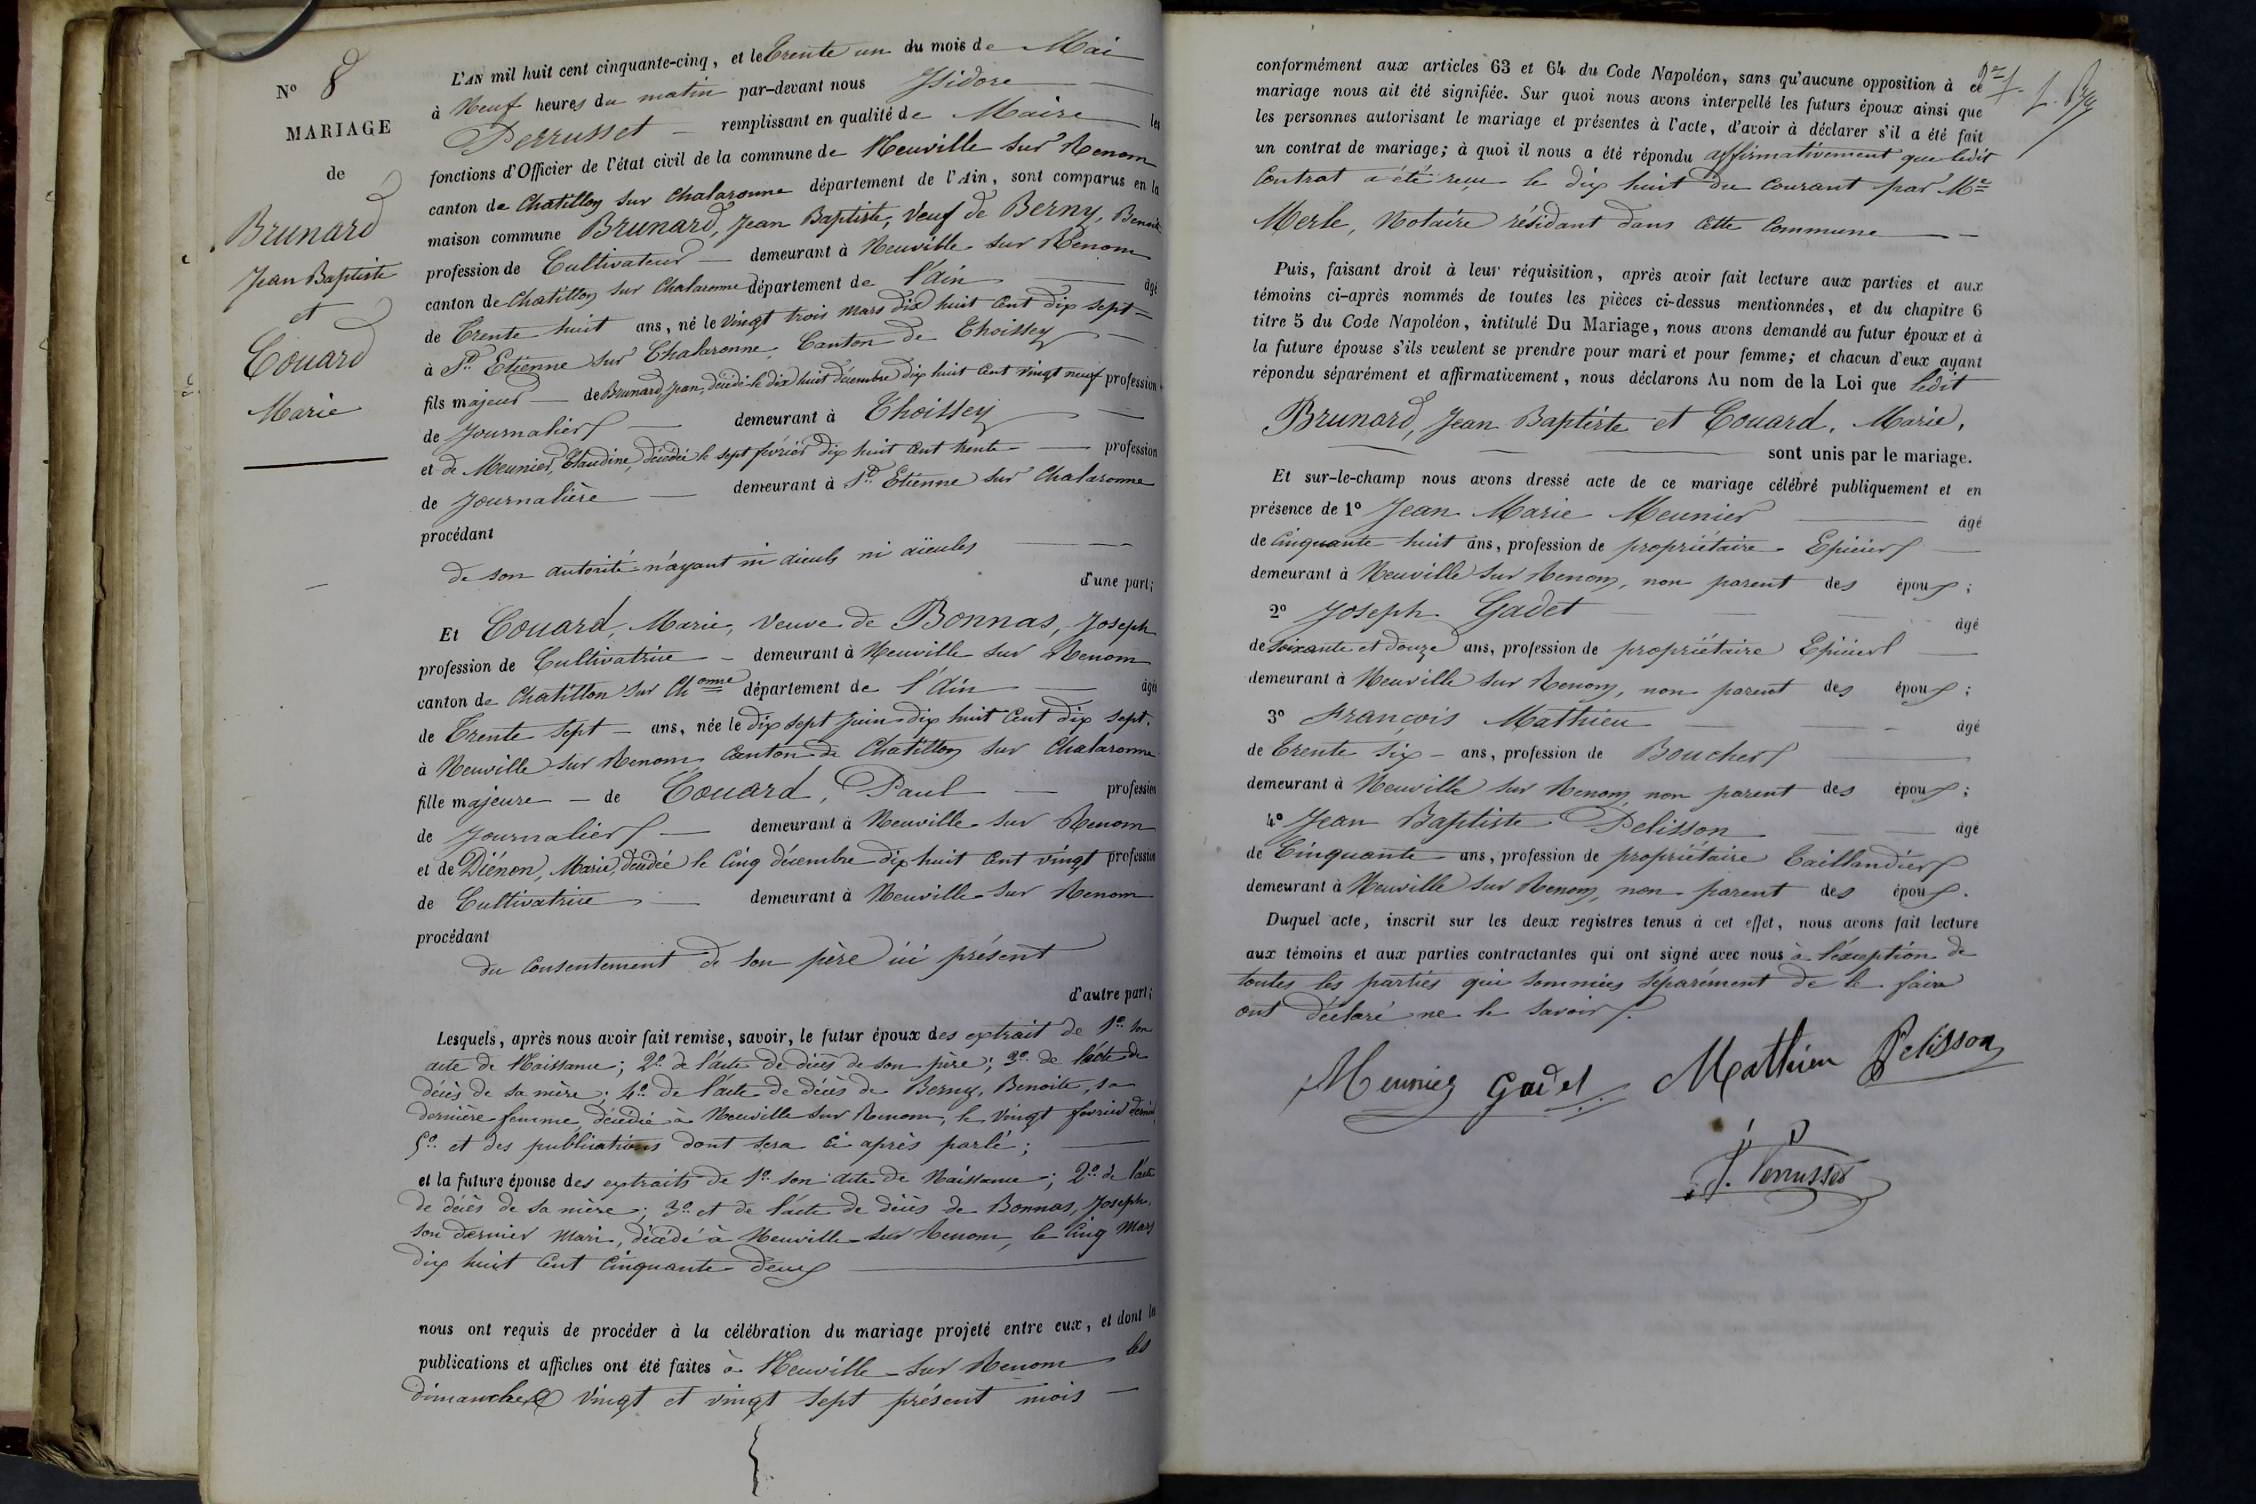 Nº 8
MARIAGE
de
Brunard
Jean Baptiste
et
Couard
Marie
L'AN mil huit cent cinquante-cinq, et le Trente un du mois de Mai
à Neuf heures du matin par-devant nous Isidore
Perrusset remplissant en qualité de Maire les
fonctions d'Officier de l'état civil de la commune de Neuville sur Renom
canton de Chatillon sur Chalaronne département de l'Ain, sont comparus en la
maison commune Brunard, Jean Baptiste, Veuf de Berny, Benoite
profession de Cultivateur demeurant à Neuville sur Renom
canton de Chatillon sur Chalaronne département de l'Ain âgé
de Trente huit ans, né le vingt trois mars dix huit cent dix sept
à St Etienne sur Chalaronne, Canton de Thoissey
fils majeur de Brunard, Jean, décédé le dix huit décembre dix huit cent vingt neuf profession
de Journalier demeurant à Thoissey
et de Meunier, Claudine, décédée le sept février dix huit cent trente profession
de Journalière demeurant à St Etienne sur Chalaronne
procédant
de son autorité n'ayant ni aieuls ni aïeules
d'une part;
Et Couard, Marie, veuve de Bonnas, Joseph
profession de Cultivatrice demeurant à Neuville sur Renom
canton de Chatillon sur Chonne département de l'Ain âgée
de Trente sept ans, née le dix sept juin dix huit cent dix sept.
à Neuville sur Renom canton de Chatillon sur Chalaronne
fille majeure de Couard, Paul profession
de Journalier demeurant à Neuville sur Renom
et de Diénon, Marie, décédée le cinq décembre dix huit cent vingt profession
de Cultivatrice demeurant à Neuville sur Renom
procédant
du consentement de son père ici présent
d'autre part;
Lesquels, après nous avoir fait remise, savoir, le futur époux des extrait de 1º son
acte de Naissance; 2º de l'acte de décès de son père; 3º de l'acte de
décès de sa mère; 4º de l'acte de décès de Berny, Benoite, sa
dernière femme, décédée à Neuville sur Renom, le vingt fevrier dernier
5º et des publications dont sera ci après parlé;
et la future épouse des extraits de 1º son acte de Naissance; 2º de l'acte
de décès de sa mère; 3º et de l'acte de décès de Bonnas, Joseph,
son dernier mari, décédé à Neuville sur Renom, le cinq Mars
dix huit cent cinquante deux
nous ont requis de procéder à la célébration du mariage projeté entre eux, et dont les
publications et affiches ont été faites à Neuville sur Renom les
dimanches vingt et vingt sept présent mois
conformément aux articles 63 et 64 du Code Napoléon, sans qu'aucune opposition à ce
mariage nous ait été signifiée. Sur quoi nous avons interpellé les futurs époux ainsi que
les personnes autorisant le mariage et présentes à l'acte, d'avoir à déclarer s'il a été fait
un contrat de mariage; à quoi il nous a été répondu affirmativement que ledit
Contrat a été reçu le dix huit du courant par Me
Merle, Notaire résidant dans cette commune
Puis, faisant droit à leur réquisition, après avoir fait lecture aux parties et aux
témoins ci-après nommés de toutes les pièces ci-dessus mentionnées, et du chapitre 6
titre 5 du Code Napoléon, intitulé Du Mariage, nous avons demandé au futur époux et à
la future épouse s'ils veulent se prendre pour mari et pour femme; et chacun d'eux ayant
répondu séparément et affirmativement, nous déclarons Au nom de la Loi que ledit
Brunard, Jean Baptiste et Couard, Marie,
sont unis par le mariage.
Et sur-le-champ nous avons dressé acte de ce mariage célébré publiquement et en
présence de 1º Jean Marie Meunier âgé
de cinquante huit ans, profession de propriétaire Epicier
demeurant à Neuville sur Renom, non parent des époux;
2º Joseph Gadet âgé
de soixante et douze ans, profession de propriétaire Epicier
demeurant à Neuville sur Renom, non parent des époux;
3º François Mathieu âgé
de Trente six ans, profession de Boucher
demeurant à Neuville sur Renom, non parent des époux;
4º Jean Baptiste Pelisson âgé
de Cinquante ans, profession de propriétaire Taillandier
demeurant à Neuville sur Renom, non parent des époux.
Duquel acte, inscrit sur les deux registres tenus à cet effet, nous avons fait lecture
aux témoins et aux parties contractantes qui ont signé avec nous à l'éxception de
toutes les parties qui sommées séparément de le faire
ont déclaré ne le savoir.
Meunier Gadet Mathieu Pelisson
J. Perrusset